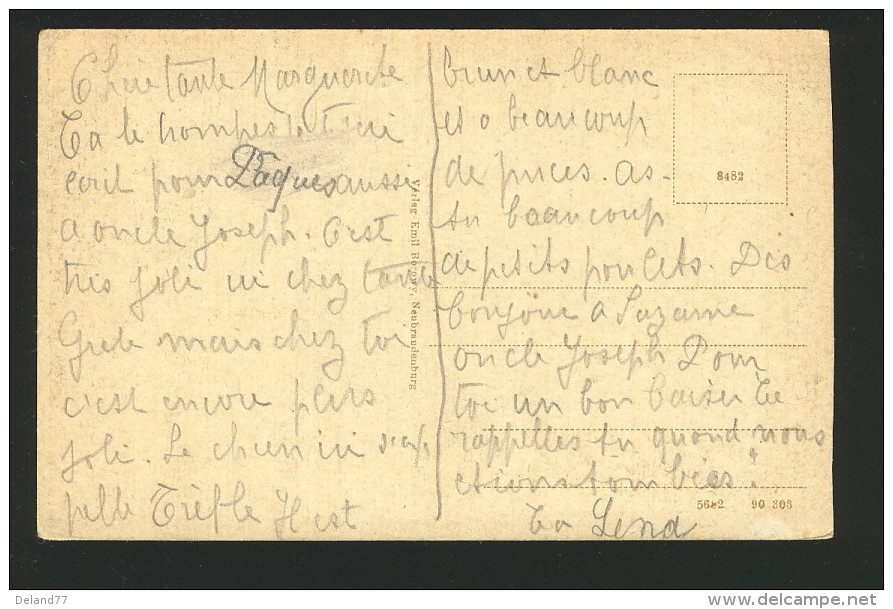 Chere tante Marguerite
Ta le
ecrit pour Pâques aussi
a oncle Joseph. C'est
tres joli ici chez tante
Grete mais chez toi
c'est encore plus
joli. Le chien ici s'ap
pelle Trèfle Il est
brun et blanc
et a beaucoup
de puces. as-
tu beaucoup
de petits poulets. Dis
bonjour a Suzanne
oncle Joseph Pour
toi un bon baiser te
rappelles tu quand nous
etions tombées.
ta Lena
Verlag Emil Borowy, Neubrandenburg
8482
5682 90 303
Deland77
www.delcampe.net